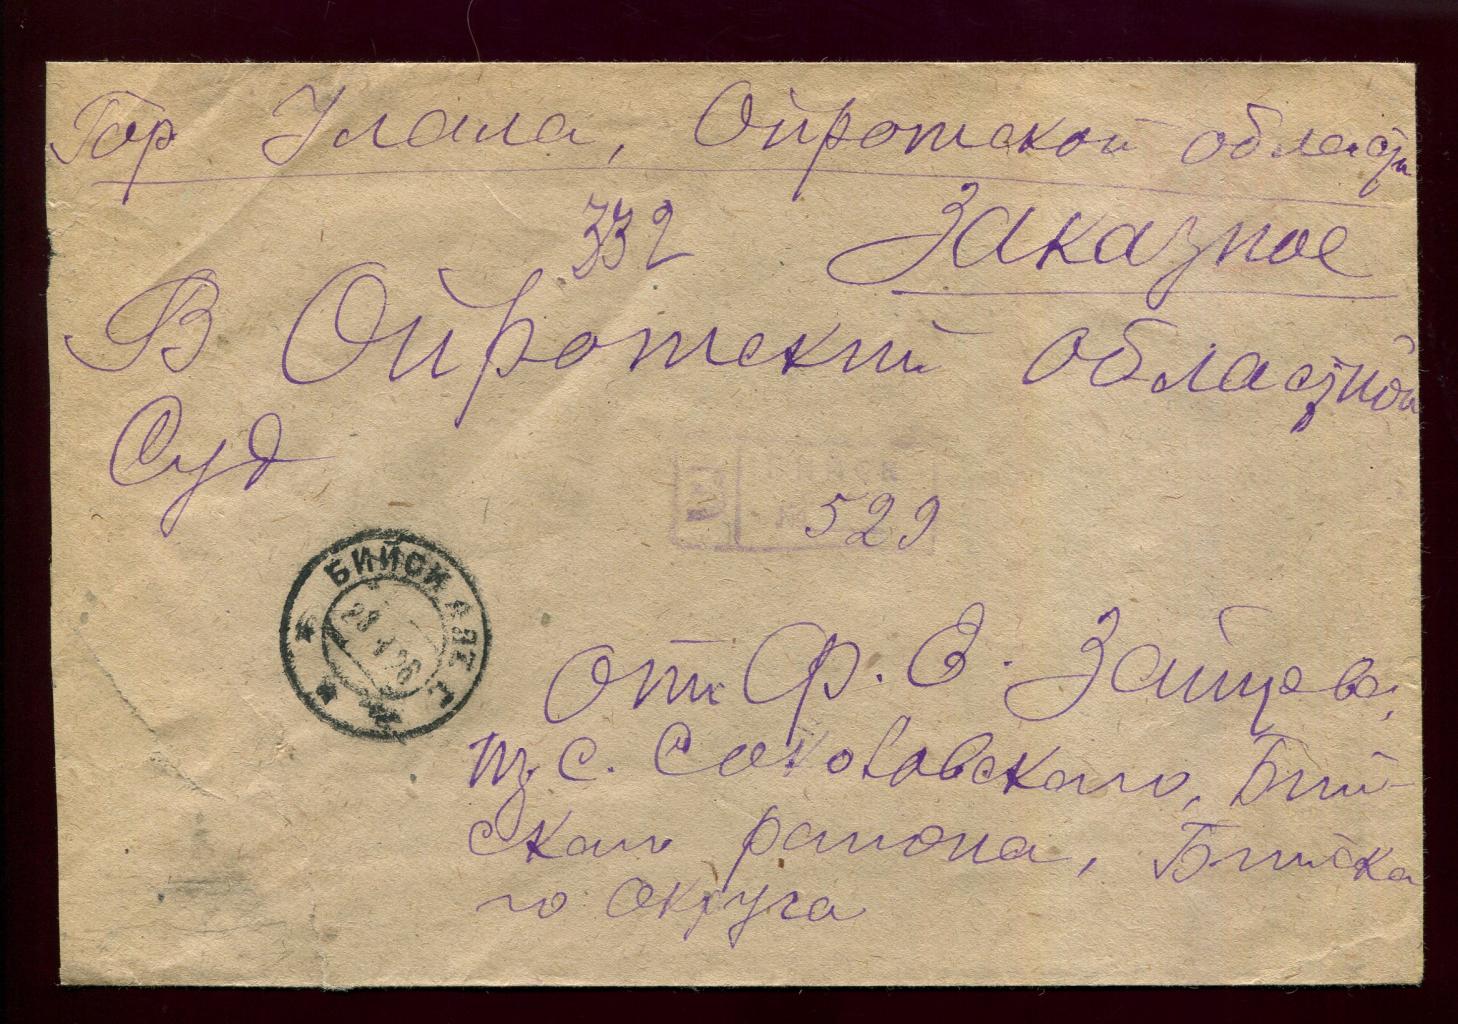 Гор Улала, Ойротской области
332 Заказное
В Ойротский областной
Суд
БИЙСК
529
БИЙСК АЛТ. Г.
28
26
от Ф. Е. Зайцева,
с. Соколовского, Бий-
скаго района, Бийска
го округа